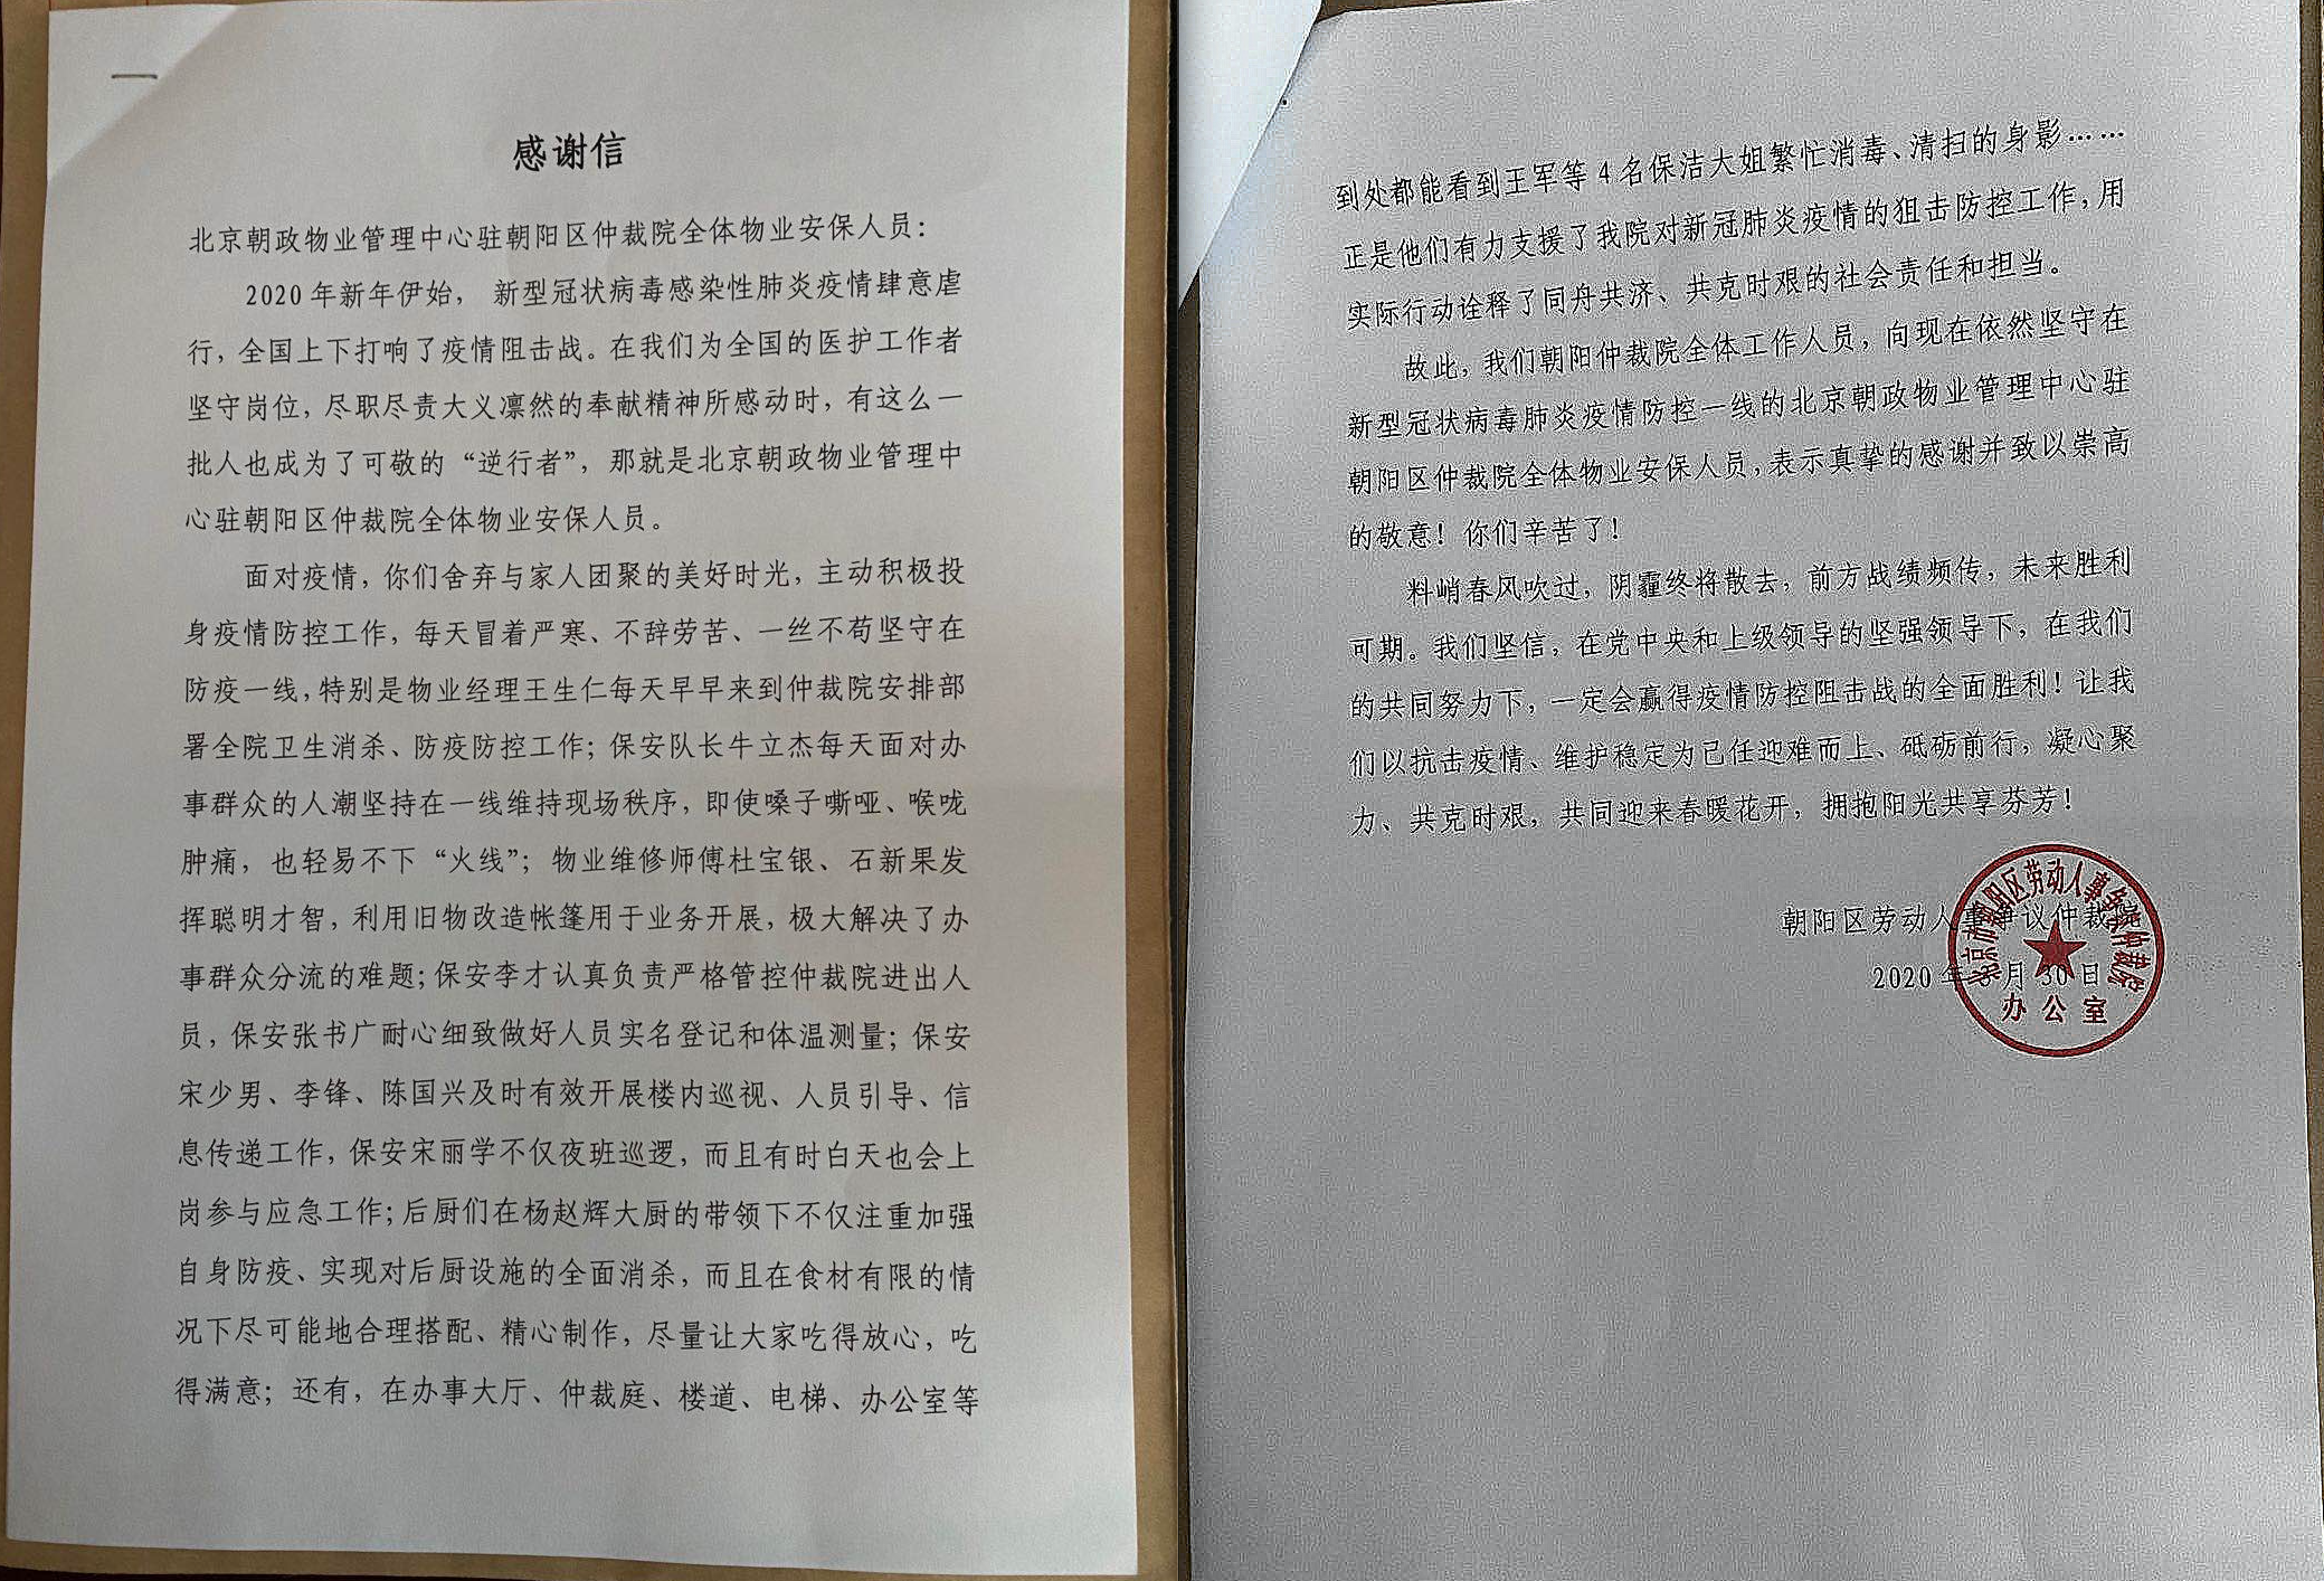 感谢信
北京朝政物业管理中心驻朝阳区仲裁院全体物业安保人员：
2020年新年伊始， 新型冠状病毒感染性肺炎疫情肆意虐
行，全国上下打响了疫情阻击战。在我们为全国的医护工作者
坚守岗位，尽职尽责大义凛然的奉献精神所感动时，有这么一
批人也成为了可敬的“逆行者”，那就是北京朝政物业管理中
心驻朝阳区仲裁院全体物业安保人员。
面对疫情，你们舍弃与家人团聚的美好时光，主动积极投
身疫情防控工作，每天冒着严寒、不辞劳苦、一丝不苟坚守在
防疫一线，特别是物业经理王生仁每天早早来到仲裁院安排部
署全院卫生消杀、防疫防控工作；保安队长牛立杰每天面对办
事群众的人潮坚持在一线维持现场秩序，即使嗓子嘶哑、喉咙
肿痛，也轻易不下“火线”；物业维修师傅杜宝银、石新果发
挥聪明才智，利用旧物改造帐篷用于业务开展，极大解决了办
事群众分流的难题；保安李才认真负责严格管控仲裁院进出人
员，保安张书广耐心细致做好人员实名登记和体温测量；保安
宋少男、李锋、陈国兴及时有效开展楼内巡视、人员引导、信
息传递工作，保安宋丽学不仅夜班巡逻，而且有时白天也会上
岗参与应急工作；后厨们在杨赵辉大厨的带领下不仅注重加强
自身防疫、实现对后厨设施的全面消杀，而且在食材有限的情
况下尽可能地合理搭配、精心制作，尽量让大家吃得放心，吃
得满意；还有，在办事大厅、仲裁庭、楼道、电梯、办公室等
到处都能看到王军等4名保洁大姐繁忙消毒、清扫的身影……
正是他们有力支援了我院对新冠肺炎疫情的狙击防控工作，用
实际行动诠释了同舟共济、共克时艰的社会责任和担当。
故此，我们朝阳仲裁院全体工作人员，向现在依然坚守在
新型冠状病毒肺炎疫情防控一线的北京朝政物业管理中心驻
朝阳区仲裁院全体物业安保人员，表示真挚的感谢并致以崇高
的敬意！你们辛苦了！
料峭春风吹过，阴霾终将散去，前方战绩频传，未来胜利
可期。我们坚信，在党中央和上级领导的坚强领导下，在我们
的共同努力下，一定会赢得疫情防控阻击战的全面胜利！让我
们以抗击疫情、维护稳定为己任迎难而上、砥砺前行，凝心聚
力、共克时艰，共同迎来春暖花开，拥抱阳光共享芬芳！
朝阳区劳动人事争议仲裁院
2020年3月30日
北京市朝阳区劳动人事争议仲裁院
办公室